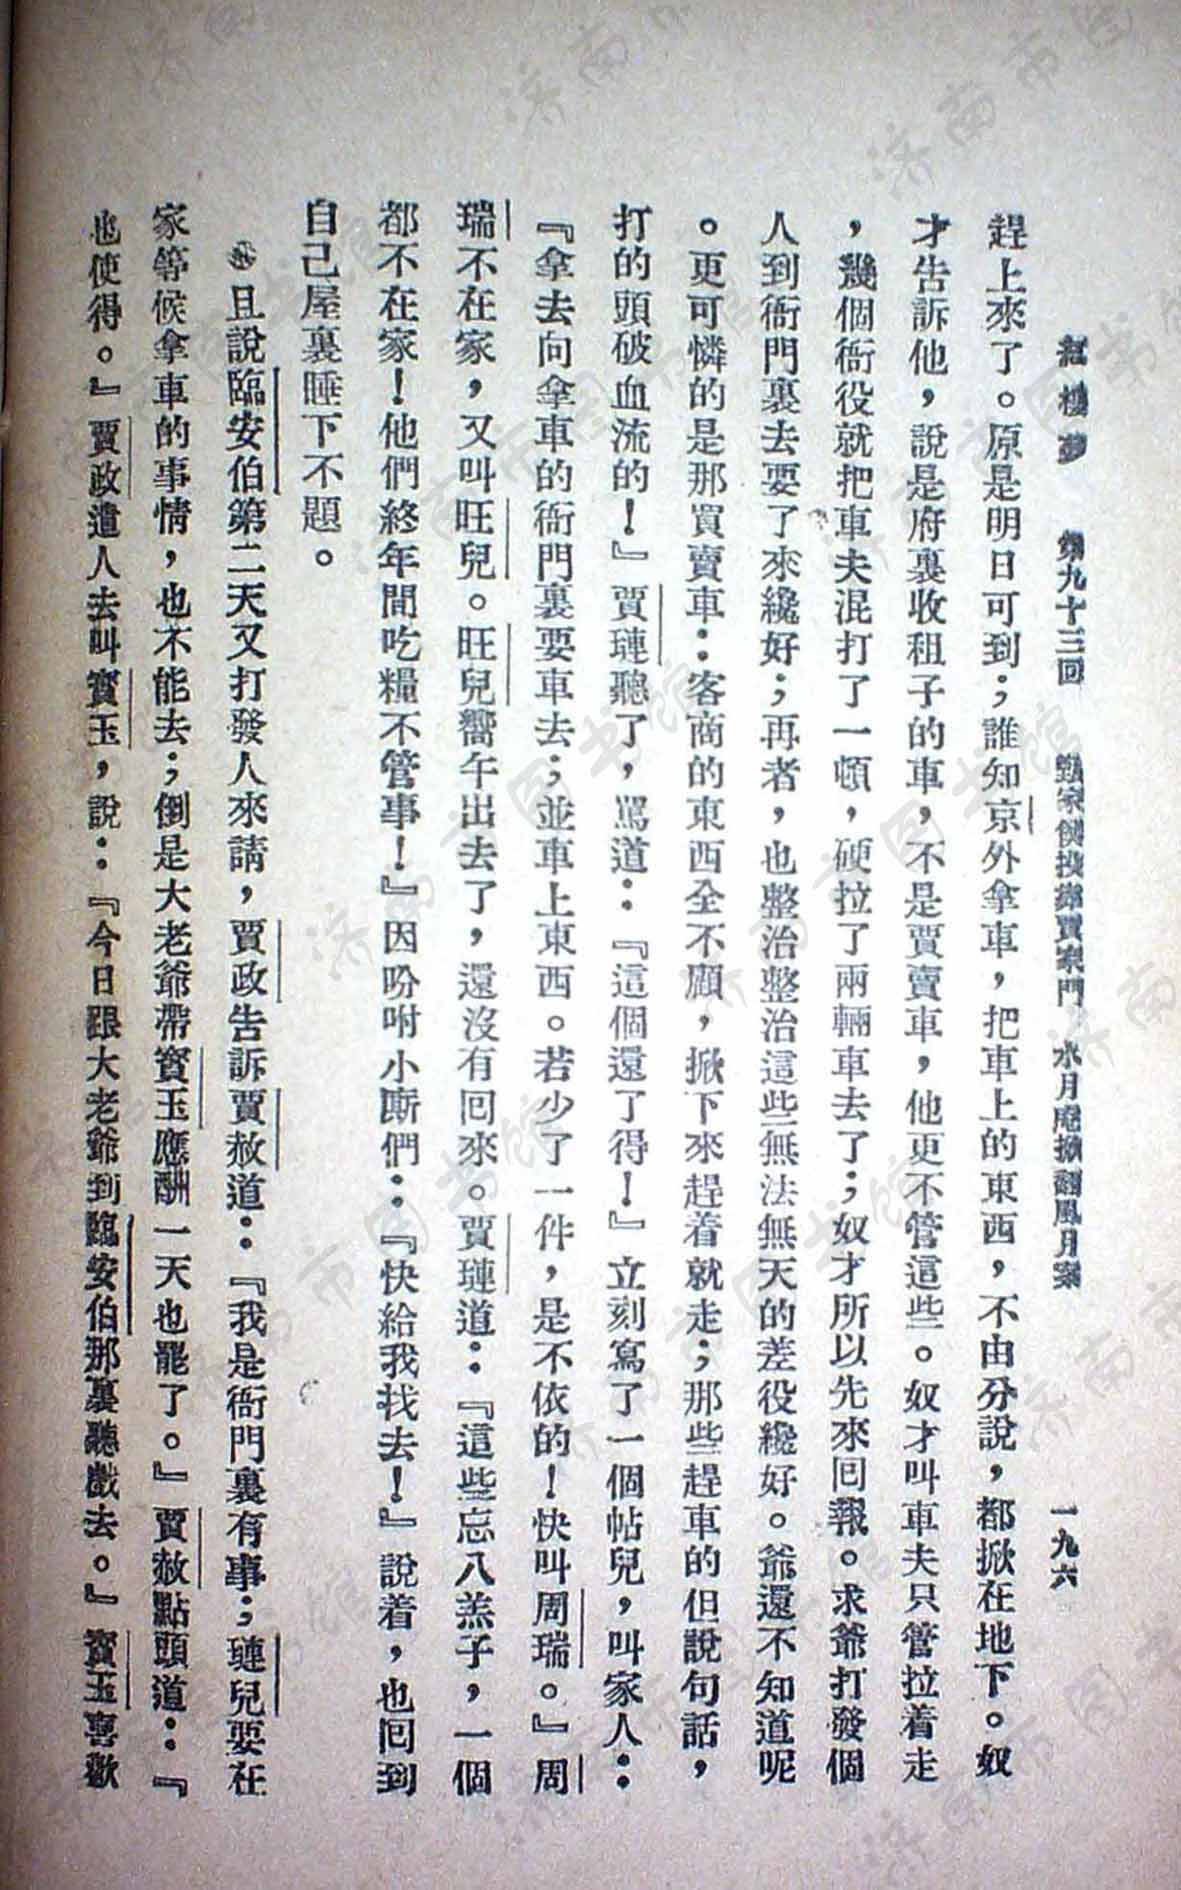 紅樓夢　第九十三回　甄家僕投靠賈家門　水月庵掀翻風月案　一九六
趕上來了。原是明日可到；誰知京外拿車，把車上的東西，不由分說，都掀在地下。奴
才告訴他，說是府裏收租子的車，不是買賣車，他更不管這些。奴才叫車夫只管拉着走
，幾個衙役就把車夫混打了一頓，硬拉了兩輛車去了；奴才所以先來回報。求爺打發個
人到衙門裏去要了來纔好；再者，也整治整治這些無法無天的差役纔好。爺還不知道呢
。更可憐的是那買賣車：客商的東西全不顧，掀下來趕着就走；那些趕車的但說句話，
打的頭破血流的！』賈璉聽了，罵道：『這個還了得！』立刻寫了一個帖兒，叫家人：
『拿去向拿車的衙門裏要車去；並車上東西。若少了一件，是不依的！快叫周瑞。』周
瑞不在家，又叫旺兒。旺兒嚮午出去了，還沒有回來。賈璉道：『這些忘八羔子，一個
都不在家！他們終年間吃糧不管事！』因吩咐小廝們：『快給我找去！』說着，也回到
自己屋裏睡下不題。
且說臨安伯第二天又打發人來請，賈政告訴賈赦道：『我是衙門裏有事；璉兒要在
家等候拿車的事情，也不能去；倒是大老爺帶寶玉應酬一天也罷了。』賈赦點頭道：『
也使得。』賈政遣人去叫寶玉，說：『今日跟大老爺到臨安伯那裏聽戲去。』寶玉喜歡
济南市图书馆